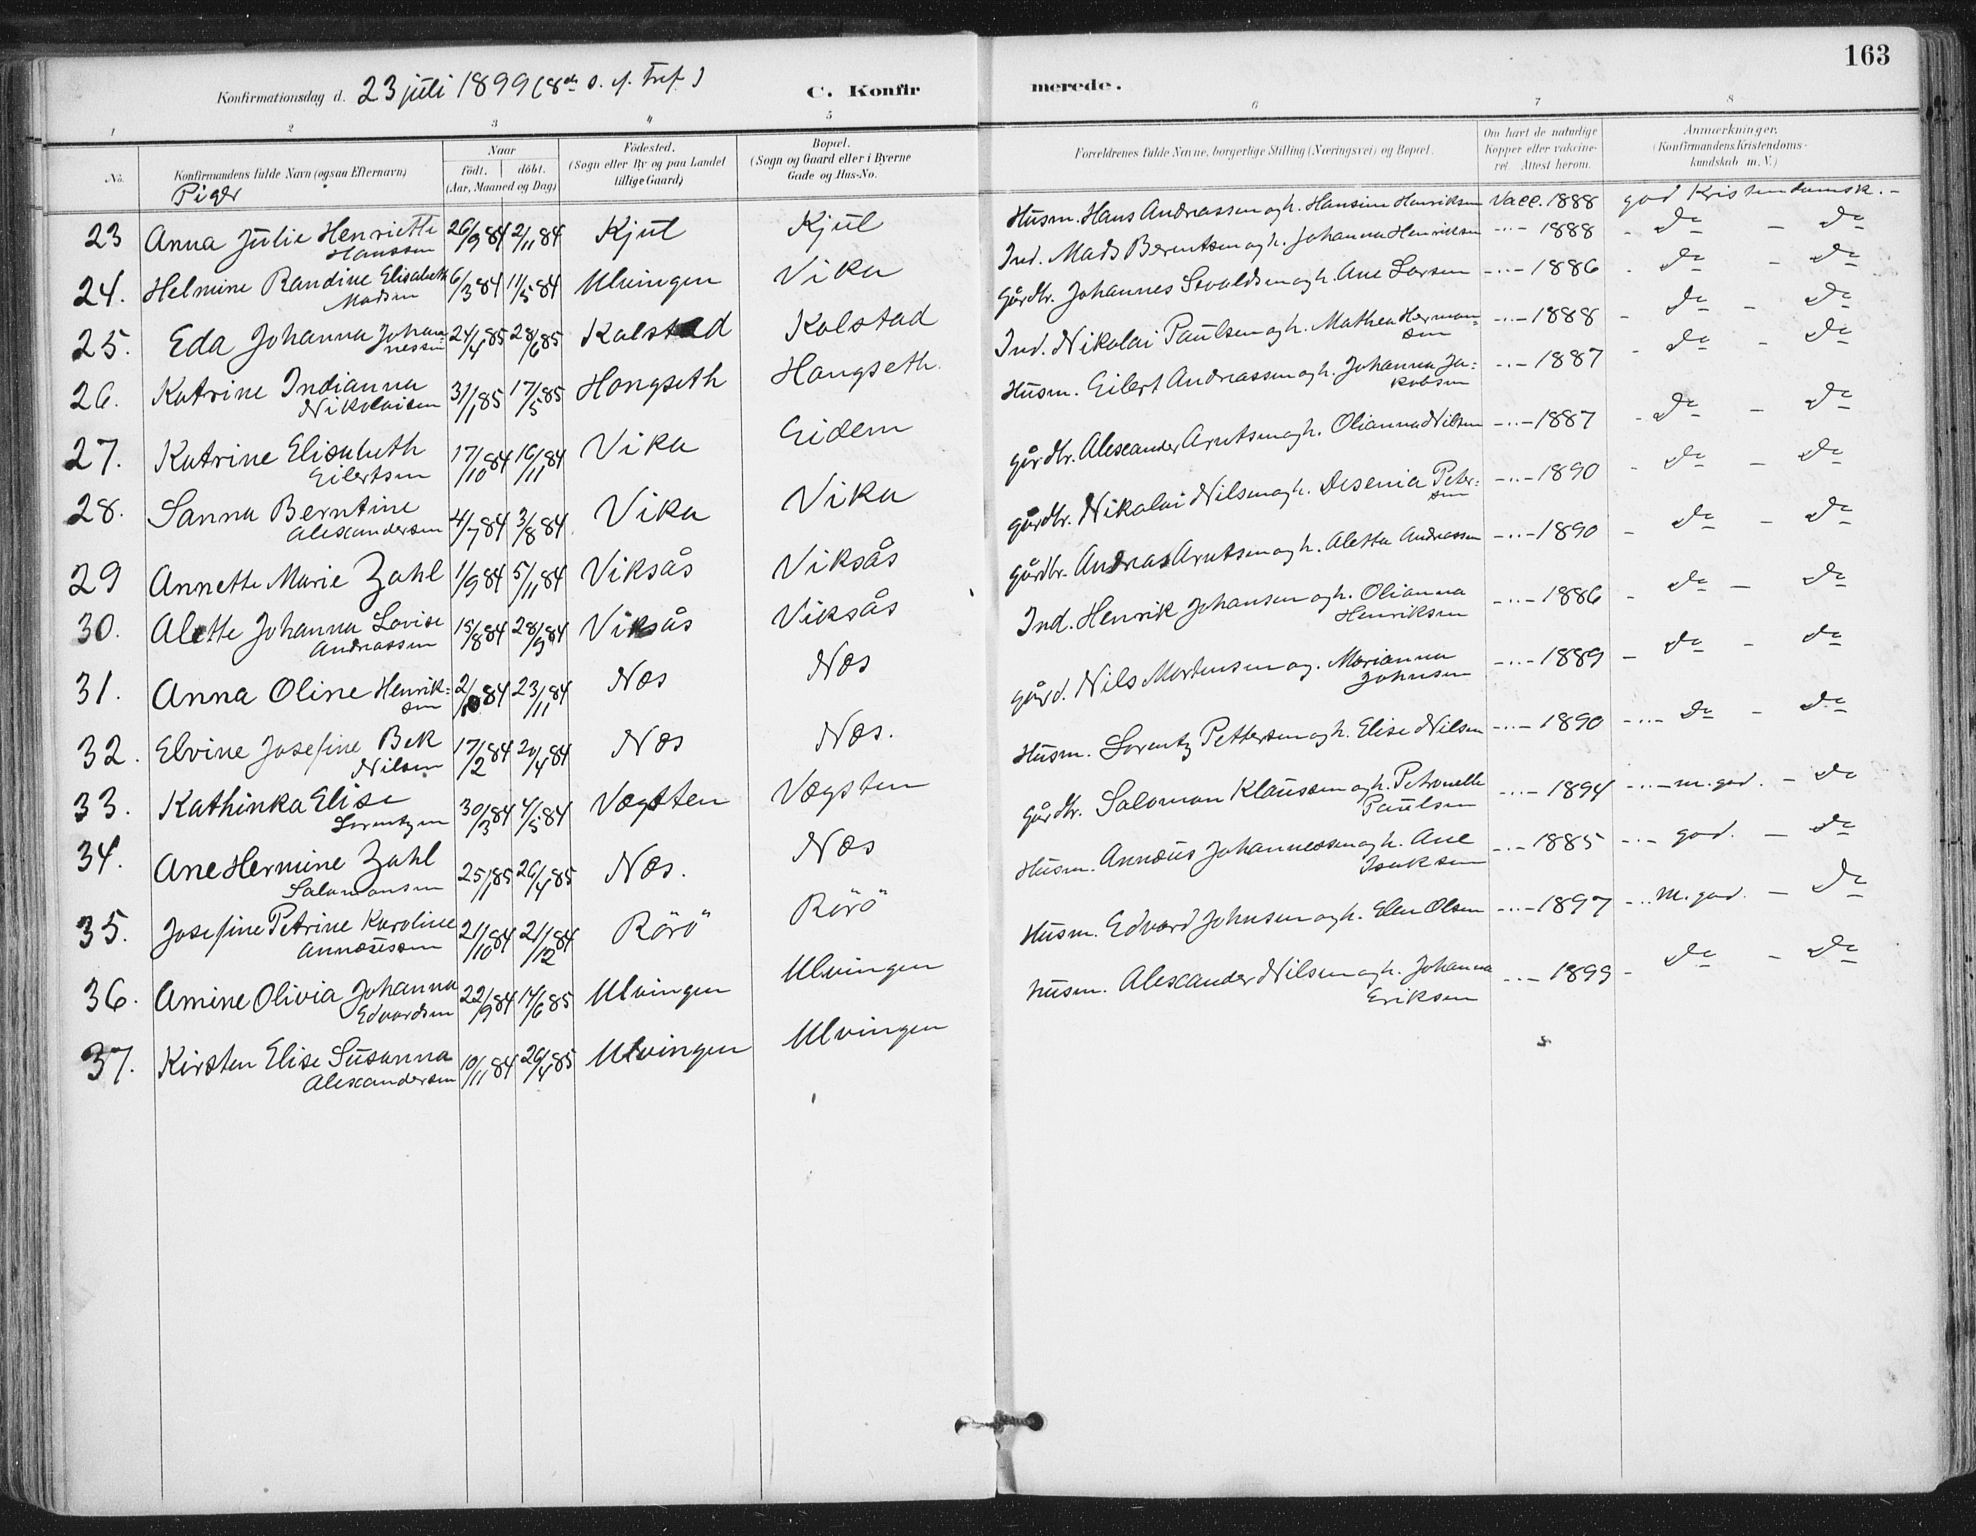 163
Konfirmationsdag d. 23 juli 1899 (8de s. e. Tref.)
C. Konfirmerede.
1 2 3 4 5 6 7 8
No.
Konfirmandens fulde Navn (ogsaa Efternavn)
Naar
födt. döbt.
(Aar, Maaned og Dag)
Födested.
(Sogn eller By og paa Landet tillige Gaard)
Bopæl.
(Sogn og Gaard eller i Byerne Gade og Hus-No.
Forældrenes fulde Navne, borgerlige Stilling (Næringsvei) og Bopæl.
Om havt de naturlige Kopper eller vaccineret. Attest herom.
Anmærkninger.
(Konfirmandens Kristendomskundskab m. V.)
Piger
23 Anna Julie Henriette Hanssen 26/9 84 2/11 84 Kjul Kjul Husm. Hans Andreassen og h. Hansine Henriksen Vacc. 1888 god Kristendomsk. -
24. Helmine Randine Elisabeth Madsen 6/3 84 11/5 84 Ulvingen Vika Ind. Mads Berntsen og h. Johanna Henriksen -..- 1888 - Do - Do
25. Eda Johanna Johannessen 24/4 85 28/6 85 Kolstad Kolstad Gårdbr. Johannes Sivaldsen og h. Ane Larsen -..- 1886 - Do - Do
26. Katrine Indianna Nikolaisen 31/1 85 17/5 85 Hongseth Hongseth. Ind. Nikolai Paulsen og h. Mathea Hermansen -..- 1888 - Do - Do
27. Katrine Elisabeth Eilertsen 17/10 84 16/11 84 Vika Eidem Husm. Eilert Andreassen og h. Johanna Jakobsen -..- 1887 - Do - Do
28. Sanna Berntine Alexandersen 4/7 84 3/8 84 Vika Vika gårdbr. Alexander Arntsen og h. Olianna Nilsen -..- 1887 - Do - Do
29 Annette Marie Zahl 1/9 84 5/11 84 Viksås Viksås gårdbr. Nikolai Nilsen og h. Desenia Petersen -..- 1890 - Do - Do
30. Alette Johanna Lovise Andreassen 15/8 84 28/9 84 Viksås Viksås gårdbr. Andreas Arntsen og h. Aletta Andreassen -..- 1890 - Do - Do
31. Anna Oline Henriksen 2/10 84 23/11 84 Næs Næs Ind. Henrik Johansen og h. Olianna Henriksen -..- 1886 - Do - Do
32. Elvine Josefine Bek Nilsen 17/2 84 20/4 84 Næs Næs. gård. Nils Mortensen og. Marianna Johnsen -..- 1889 - Do - Do
33. Kathinka Elise Lorentzen 30/3 84 4/5 84 Vægsten Vægsten Husm. Lorentz Pettersen og h. Elise Nilsen -..- 1890 -..- Do - Do
34. Ane Hermine Zahl Salomonsen 25/1 85 26/4 85 Næs. Næs gårdbr. Salomon Klaussen og h. Petronelle Paulsen -..- 1894 -..- m. god. - Do
35. Josefine Petrine Karoline Annæussen 21/10 84 21/12 84 Rörö Rörö Husm. Annæus Johannessen og h. Ane Isaksen -..- 1885 -..- god. - Do
36. Amine Olivia Johanna Edvardsen 22/9 84 14/6 85 Ulvingen Ulvingen Husm. Edvard Johnsen og h. Elen Olsen -..- 1897 -..- M. god. - Do
37. Kirsten Elise Susanna Alexandersen 10/11 84 26/4 85 Ulvingen Ulvingen husm. Alexander Nilsen og h. Johanna Eriksen -..- 1899 - Do - Do